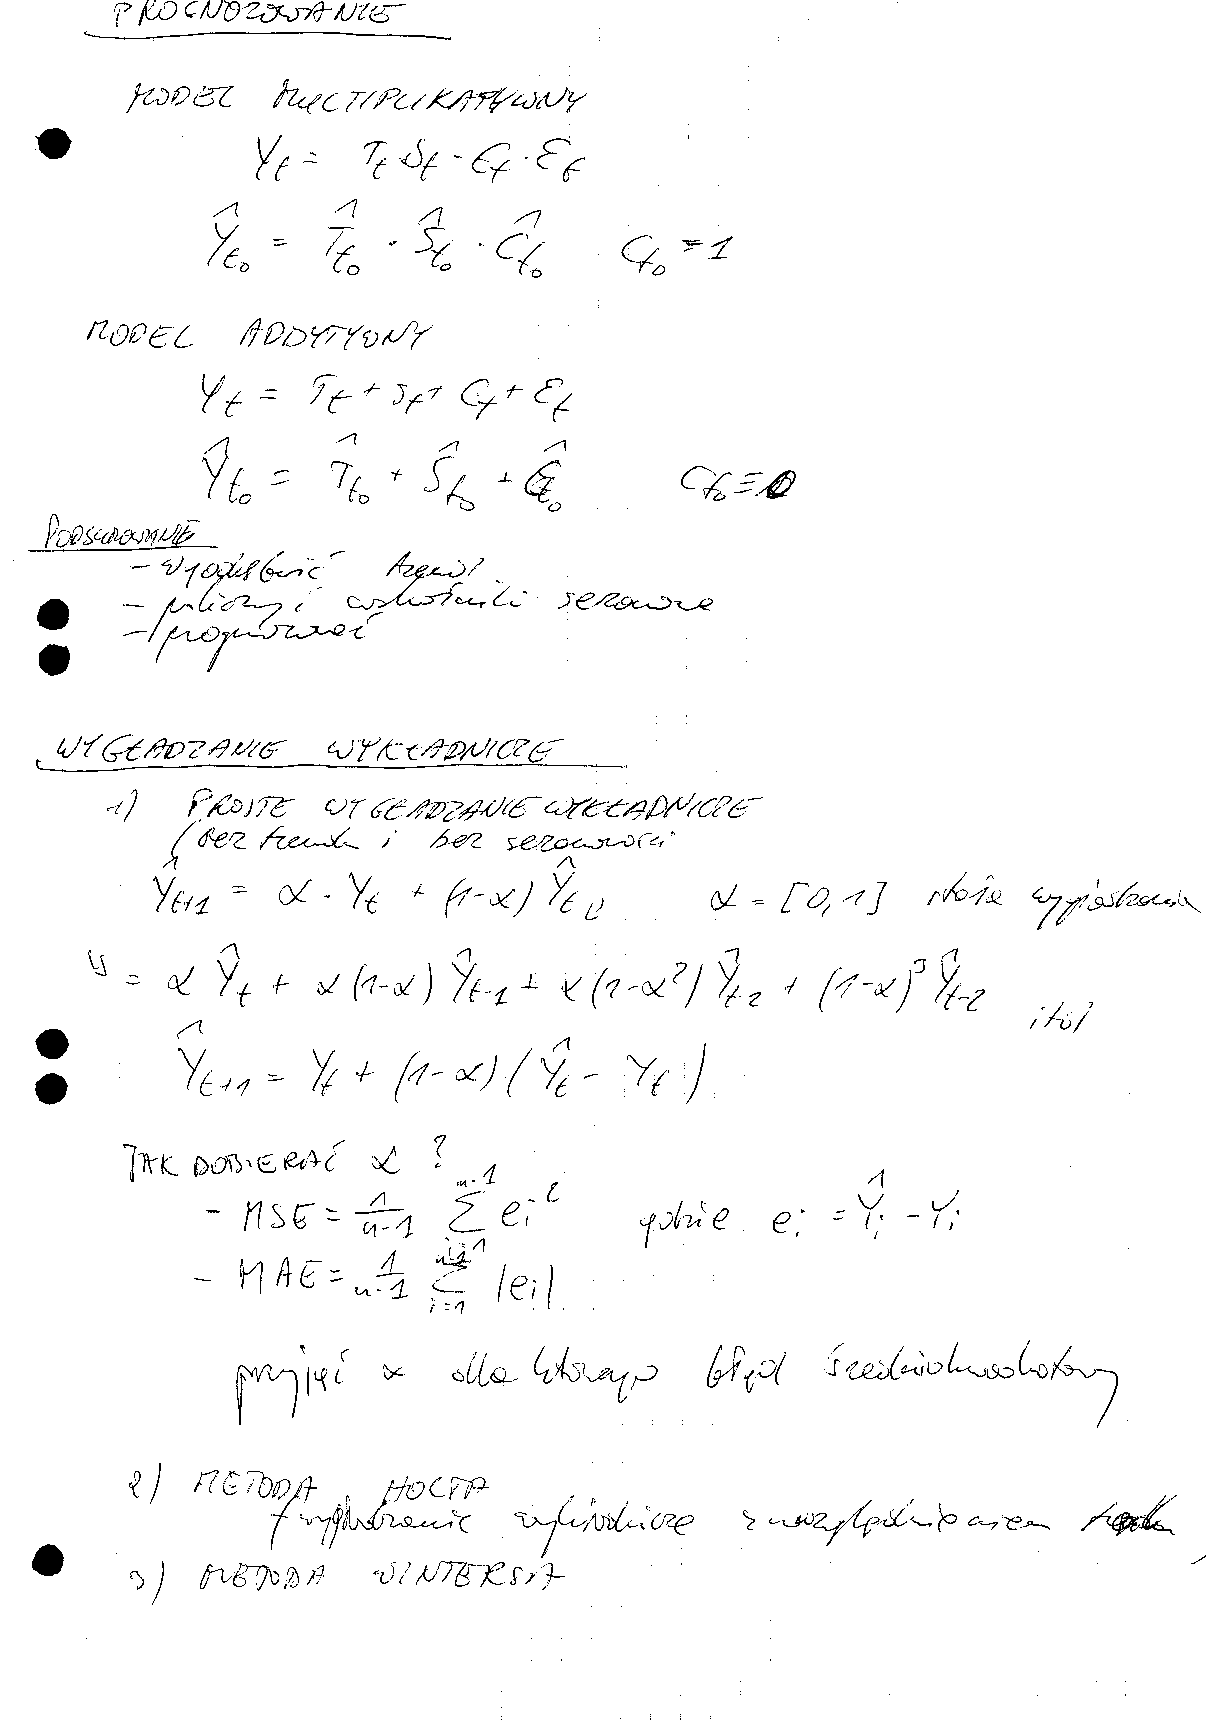 PROGNOZOWANIE
MODEL MULTIPLIKATYWNY
Y_t = T_t · S_t · C_t · ε_t
Ŷ_t₀ = T̂_t₀ · Ŝ_t₀ · Ĉ_t₀ C_t₀ = 1
MODEL ADDYTYWNY
Y_t = T_t + S_t + C_t + ε_t
Ŷ_t₀ = T̂_t₀ + Ŝ_t₀ + Ĉ_t₀ C_t₀ = 0
PODSUMOWANIE
- wyodrębnić trend
- policzyć wskaźniki sezonowe
- prognozować
WYGŁADZANIE WYKŁADNICZE
1) PROSTE WYGŁADZANIE WYKŁADNICZE
(bez trendu i bez sezonowości
Ŷ_t+1 = α · Y_t + (1-α) Ŷ_t α = [0,1] stała wygładzania
= α Ŷ_t + α(1-α) Ŷ_t-1 + α(1-α²) Ŷ_t-2 + (1-α)³ Ŷ_t-2 itd
Ŷ_t+1 = Y_t + (1-α)(Ŷ_t - Y_t)
JAK DOBIERAĆ α ?
- MSE = 1/(n-1) Σ e_i² gdzie e_i = Ŷ_i - Y_i
- MAE = 1/(n-1) Σ |e_i|
przyjąć α dla którego błąd średniokwadratowy
2) METODA HOLTA
wygładzanie wykładnicze z uwzględnieniem trendu
3) METODA WINTERSA